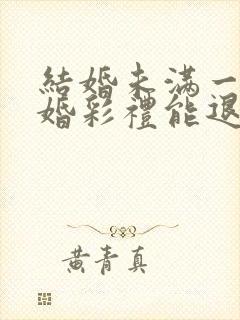 結婚未滿一
婚彩禮能退
黃青真